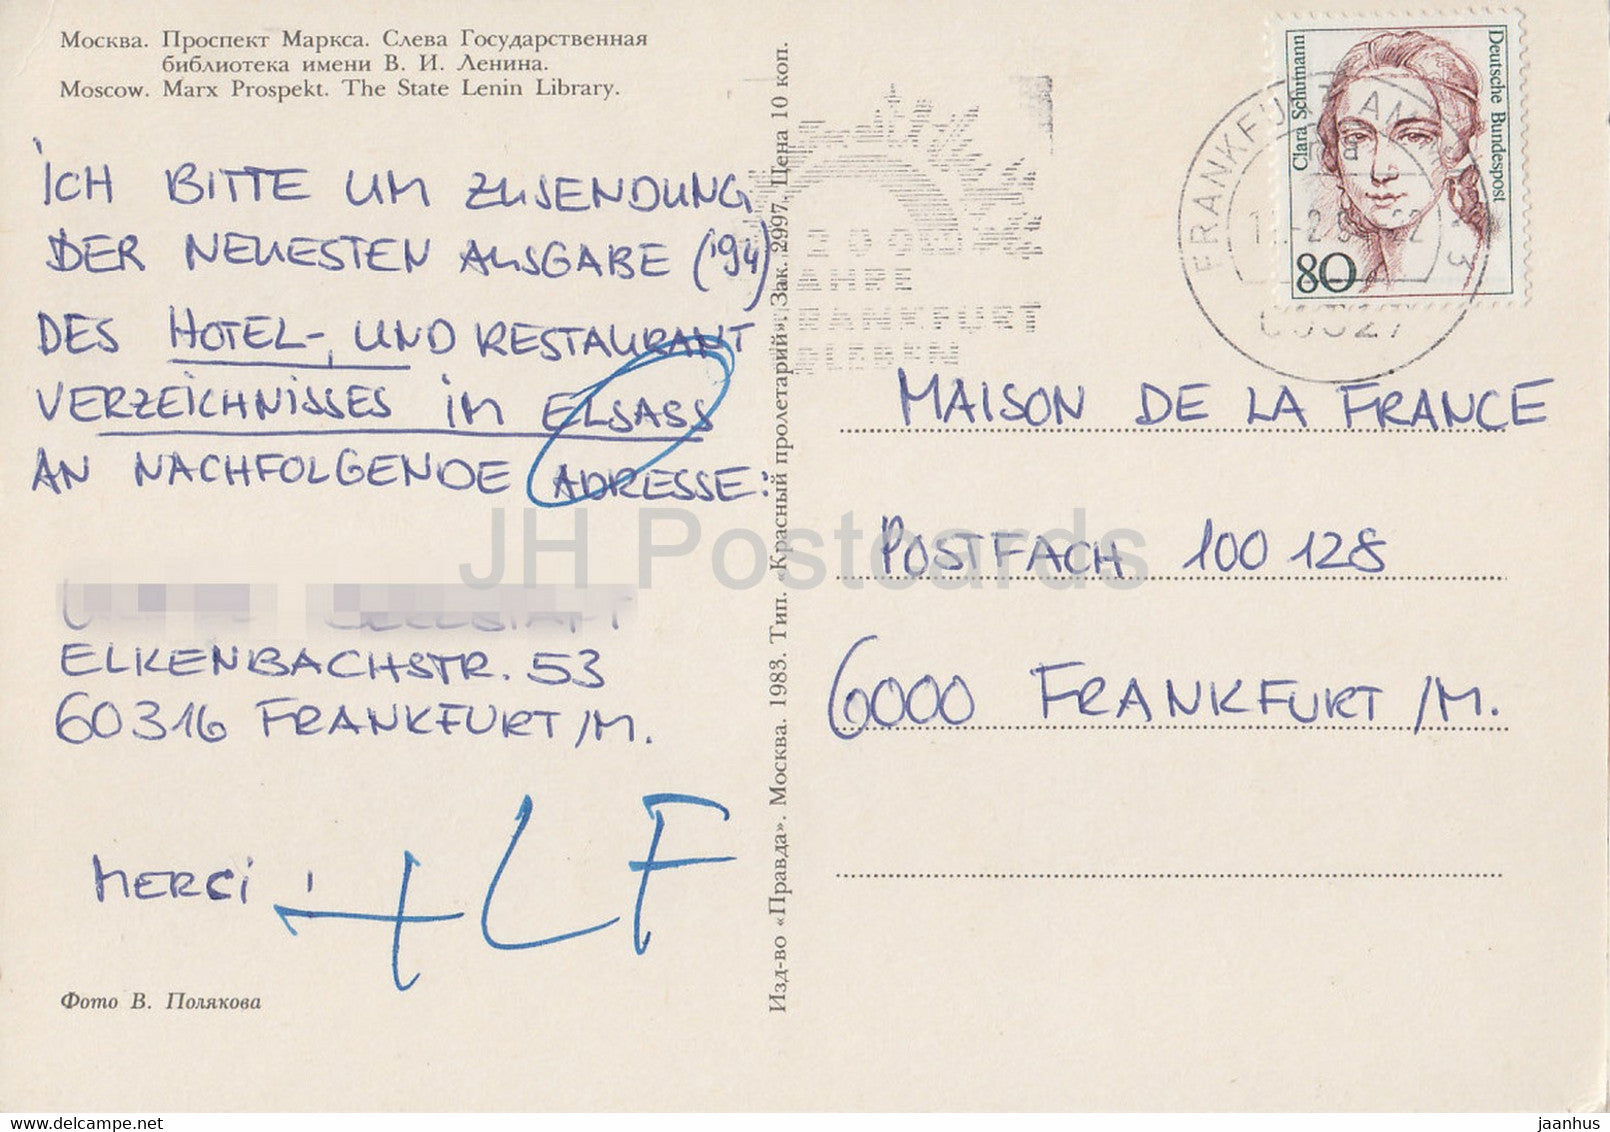 Москва. Проспект Маркса. Слева Государственная
библиотека имени В. И. Ленина.
Moscow. Marx Prospekt. The State Lenin Library.
ICH BITTE UM ZUSENDUNG
DER NEUESTEN AUSGABE ('94)
DES HOTEL-, UND RESTAURANT
VERZEICHNISSES IM ELSASS
AN NACHFOLGENDE ADRESSE:
ELKENBACHSTR. 53
60316 FRANKFURT /M.
MERCI !
+LF
Фото В. Полякова
Изд-во «Правда». Москва. 1983. Тип. «Красный пролетарий». Зак. 2997. Цена 10 коп.
1200
JAHRE
FRANKFURT
FRANKFURT AM
Clara Schumann
Deutsche Bundespost
80
MAISON DE LA FRANCE
POSTFACH 100 128
6000 FRANKFURT /M.
JH Postcards
www.delcampe.net
jaanhus